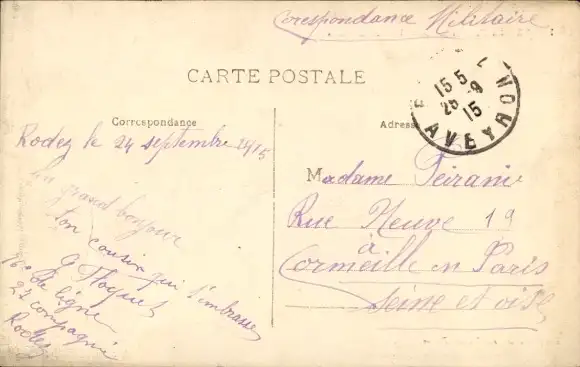 Corespondance Militaire
CARTE POSTALE
Correspondance
Adresse
15 5
25 -9
15
AVEYRON
Rodez le 24 septembre 1915
un grand bonjour
ton cousin qui t'embrasse
G Floquet
96e de ligne
27 compagnie
Rodez
Madame Peiranie
Rue Neuve 19
à
Cormeille en Paris
Seine et oise